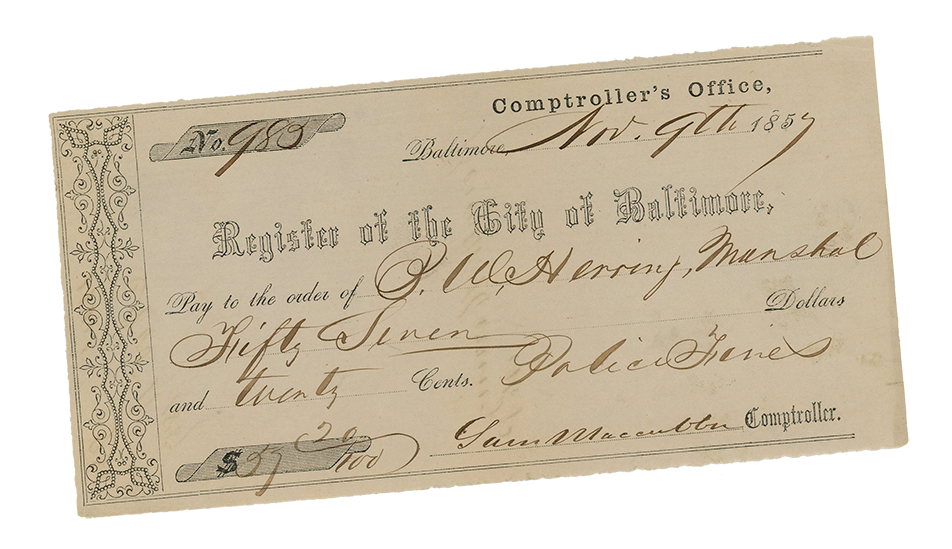 Comptroller's Office,
No. 983
Baltimore, Nov. 9th 1857
Register of the City of Baltimore,
Pay to the order of B. W. Herring, Marshal
Fifty Seven Dollars
and twenty Cents. Police Fines
$57 20/100 Sam Maccubbin Comptroller.